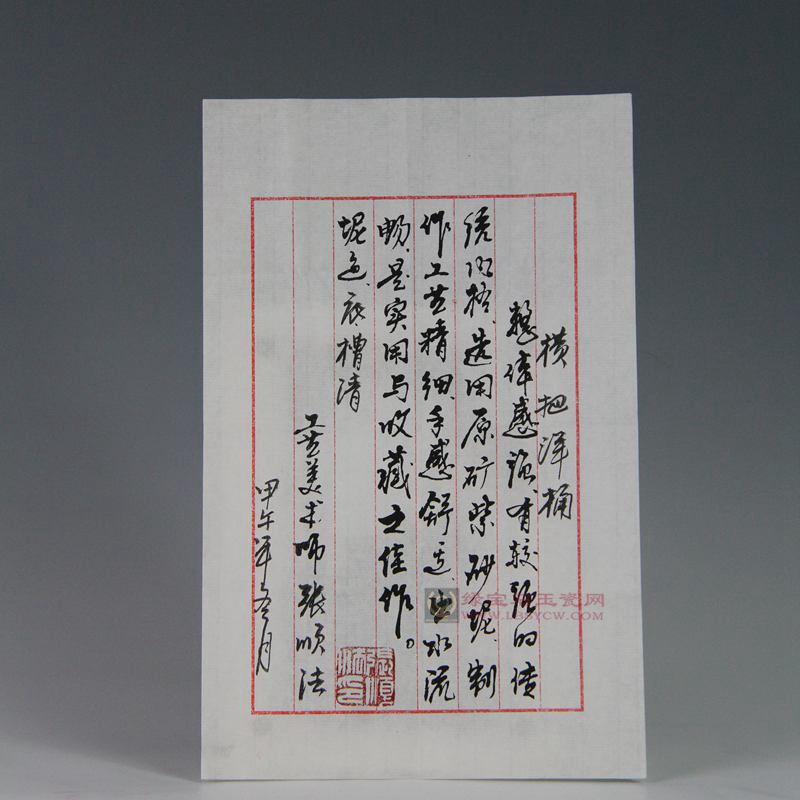 横把洋桶
整体感强,有较强的传
统风格,选用原矿紫砂坭,制
作工艺精细,手感舒适,出水流
畅,是实用与收藏之佳作。
坭色:底槽清
工艺美术师张顺法
甲午年冬月
宝 玉瓷网
WWW.LBSYCW.COM